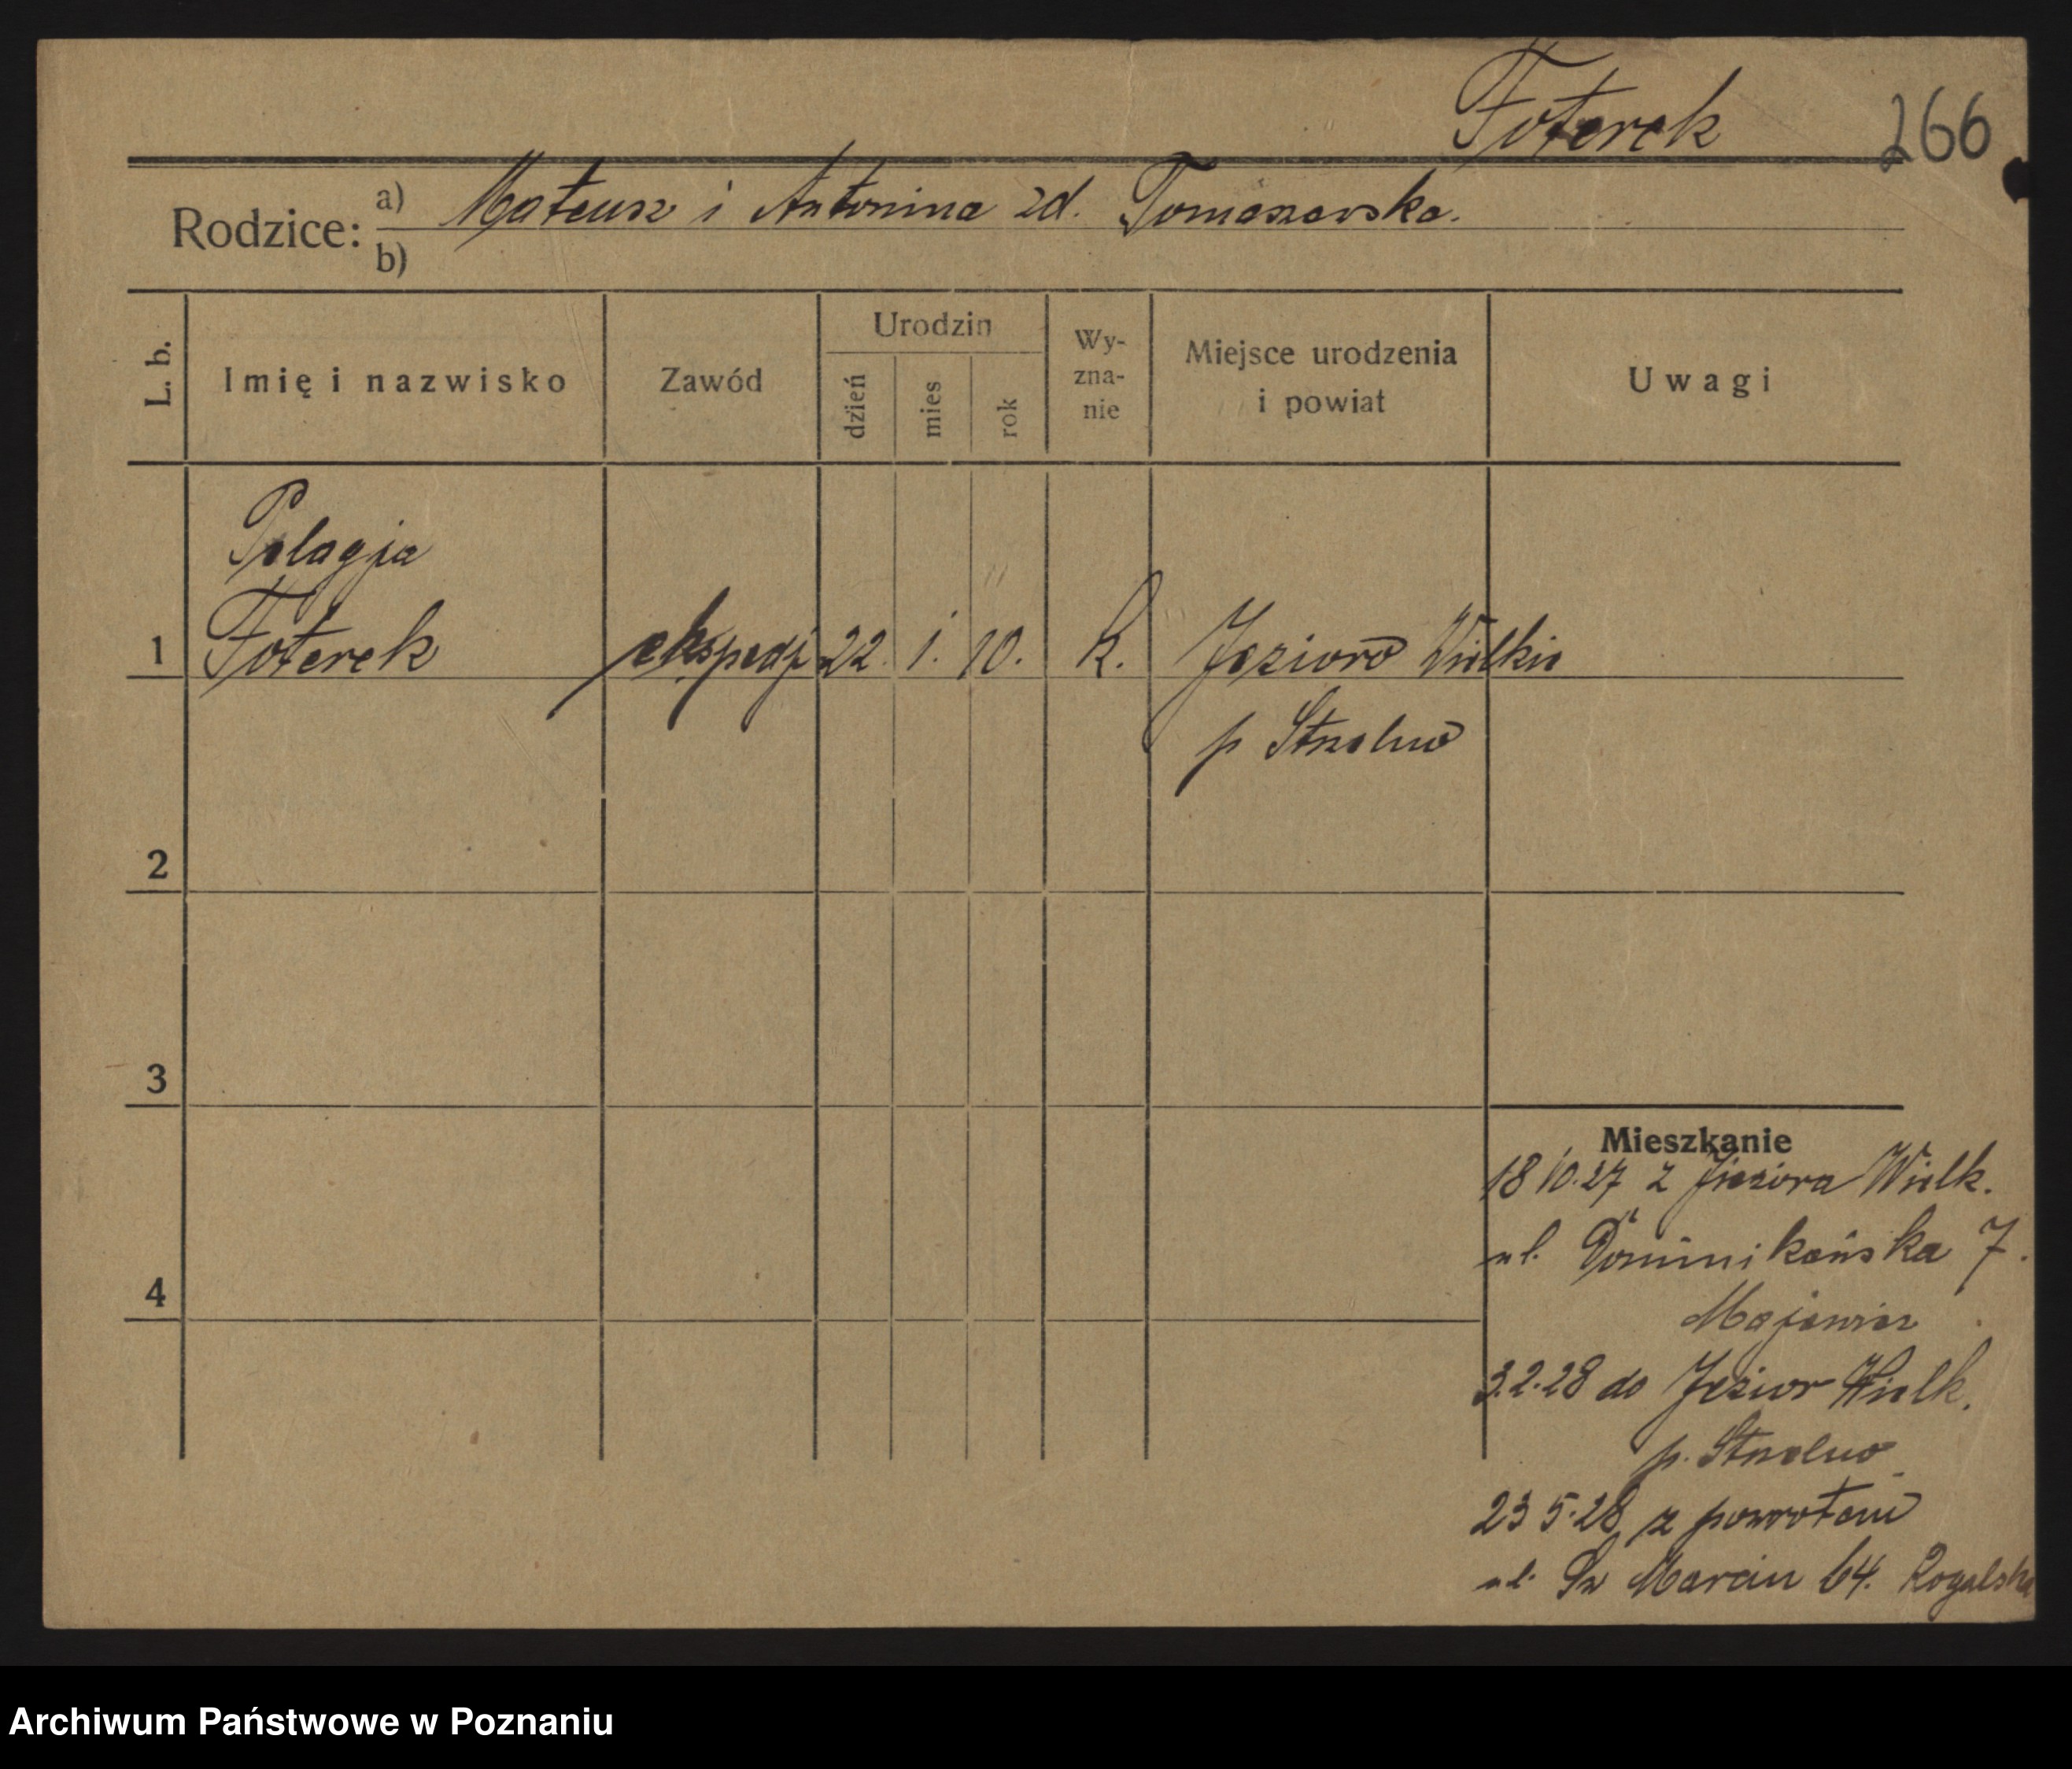 Foterek 266
Rodzice: a) Mateusz i Antonina zd. Tomaszewska.
b)
L. b. Imię i nazwisko Zawód Urodzin dzień mies rok Wy-zna-nie Miejsce urodzenia i powiat Uwagi
Pelagja
1 Foterek ekspedj 22. 1. 10. k. Jezioro Wielkie
p Strzelno
2
3
4
Mieszkanie
18 10.27 z Jeziora Wielk.
ul. Dominikańska 7.
3.2.28 do Jezior Wielk.
p. Strzelno
23 5.28 z powrotem
ul. Św Marcin 64. Rogalska
Archiwum Państwowe w Poznaniu